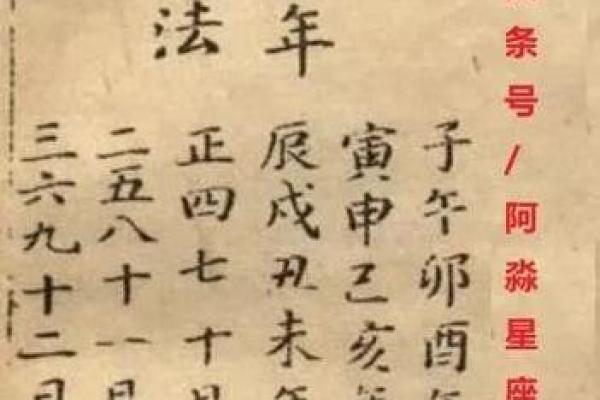 条号/阿淼星座
年法
子午卯酉年
寅申己亥年
辰戌丑未年
正四七十月
二五八十一月
三六九十二月